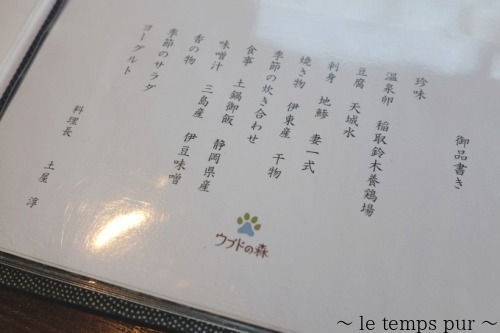 御品書き
珍味
温泉卵　稲取鈴木養鶏場
豆腐　天城水
刺身　地鯵　妻一式
焼き物　伊東産　干物
季節の炊き合わせ
食事　土鍋御飯　静岡県産
味噌汁　三島産　伊豆味噌
香の物
季節のサラダ
ヨーグルト
料理長　土屋　淳
ウブドの森
～ le temps pur ～